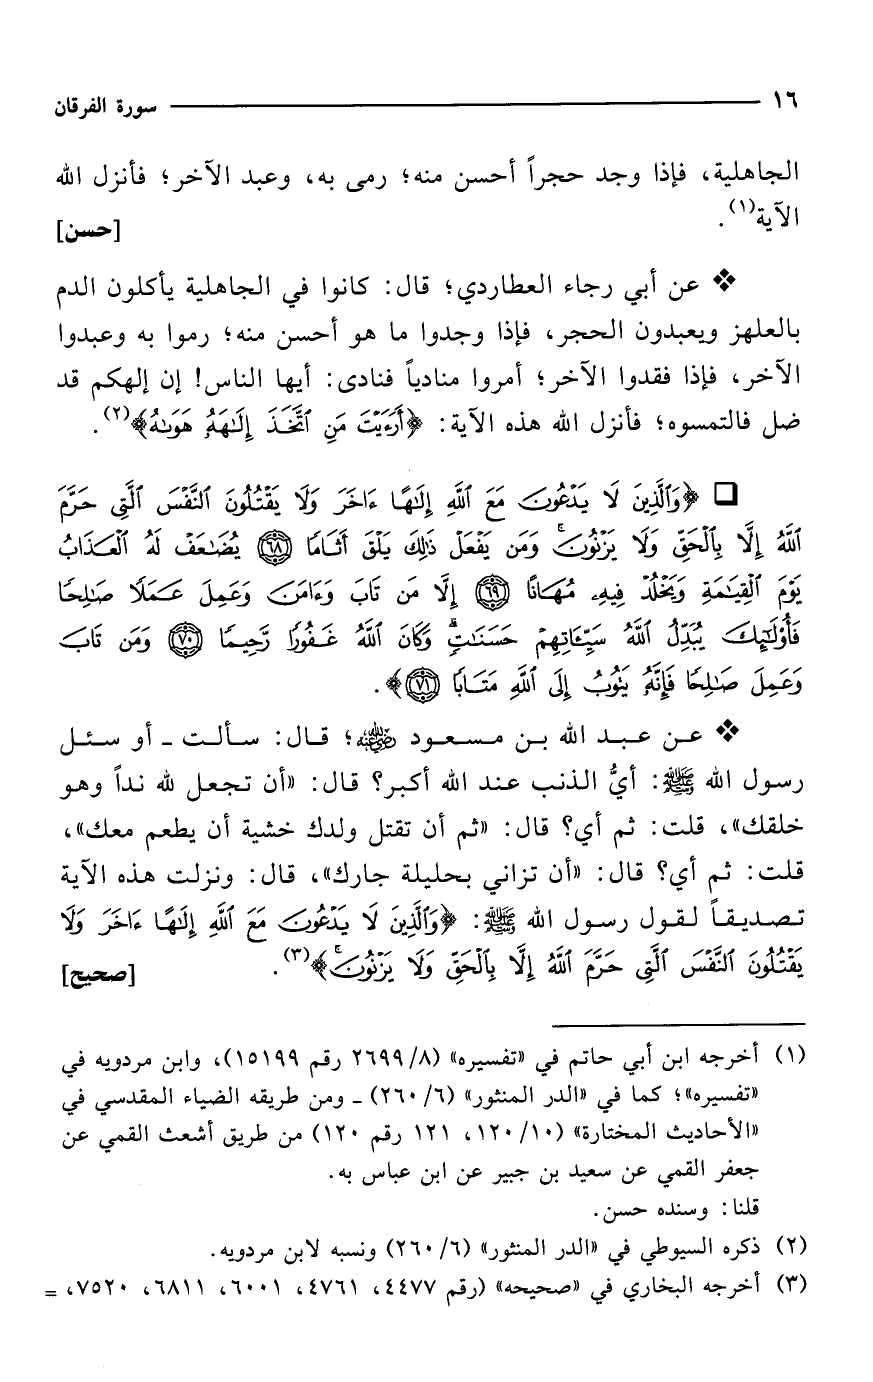 ١٦ سورة الفرقان
الجاهلية، فإذا وجد حجراً أحسن منه؛ رمى به، وعبد الآخر؛ فأنزل الله
الآية(١). [حسن]
❖ عن أبي رجاء العطاردي؛ قال: كانوا في الجاهلية يأكلون الدم
بالعلهز ويعبدون الحجر، فإذا وجدوا ما هو أحسن منه؛ رموا به وعبدوا
الآخر، فإذا فقدوا الآخر؛ أمروا منادياً فنادى: أيها الناس! إن إلهكم قد
ضل فالتمسوه؛ فأنزل الله هذه الآية: ﴿أَرَءَيْتَ مَنِ ٱتَّخَذَ إِلَٰهَهُۥ هَوَىٰهُ﴾(٢).
❑ ﴿وَٱلَّذِينَ لَا يَدْعُونَ مَعَ ٱللَّهِ إِلَٰهًا ءَاخَرَ وَلَا يَقْتُلُونَ ٱلنَّفْسَ ٱلَّتِى حَرَّمَ
ٱللَّهُ إِلَّا بِٱلْحَقِّ وَلَا يَزْنُونَۚ وَمَن يَفْعَلْ ذَٰلِكَ يَلْقَ أَثَامًا ٦٨ يُضَٰعَفْ لَهُ ٱلْعَذَابُ
يَوْمَ ٱلْقِيَٰمَةِ وَيَخْلُدْ فِيهِۦ مُهَانًا ٦٩ إِلَّا مَن تَابَ وَءَامَنَ وَعَمِلَ عَمَلًا صَٰلِحًا
فَأُو۟لَٰٓئِكَ يُبَدِّلُ ٱللَّهُ سَيِّـَٔاتِهِمْ حَسَنَٰتٍۗ وَكَانَ ٱللَّهُ غَفُورًا رَّحِيمًا ٧٠ وَمَن تَابَ
وَعَمِلَ صَٰلِحًا فَإِنَّهُۥ يَتُوبُ إِلَى ٱللَّهِ مَتَابًا ٧١﴾.
❖ عن عبد الله بن مسعود رضي الله عنه؛ قال: سألت ـ أو سئل
رسول الله ﷺ: أيُّ الذنب عند الله أكبر؟ قال: «أن تجعل لله نداً وهو
خلقك»، قلت: ثم أي؟ قال: «ثم أن تقتل ولدك خشية أن يطعم معك»،
قلت: ثم أي؟ قال: «أن تزاني بحليلة جارك»، قال: ونزلت هذه الآية
تصديقاً لقول رسول الله ﷺ: ﴿وَٱلَّذِينَ لَا يَدْعُونَ مَعَ ٱللَّهِ إِلَٰهًا ءَاخَرَ وَلَا
يَقْتُلُونَ ٱلنَّفْسَ ٱلَّتِى حَرَّمَ ٱللَّهُ إِلَّا بِٱلْحَقِّ وَلَا يَزْنُونَۚ﴾(٣). [صحيح]
(١) أخرجه ابن أبي حاتم في «تفسيره» (٨/ ٢٦٩٩ رقم ١٥١٩٩)، وابن مردويه في
«تفسيره»؛ كما في «الدر المنثور» (٦/ ٢٦٠) ـ ومن طريقه الضياء المقدسي في
«الأحاديث المختارة» (١٠/ ١٢٠، ١٢١ رقم ١٢٠) من طريق أشعث القمي عن
جعفر القمي عن سعيد بن جبير عن ابن عباس به.
قلنا: وسنده حسن.
(٢) ذكره السيوطي في «الدر المنثور» (٦/ ٢٦٠) ونسبه لابن مردويه.
(٣) أخرجه البخاري في «صحيحه» (رقم ٤٤٧٧، ٤٧٦١، ٦٠٠١، ٦٨١١، ٧٥٢٠، =